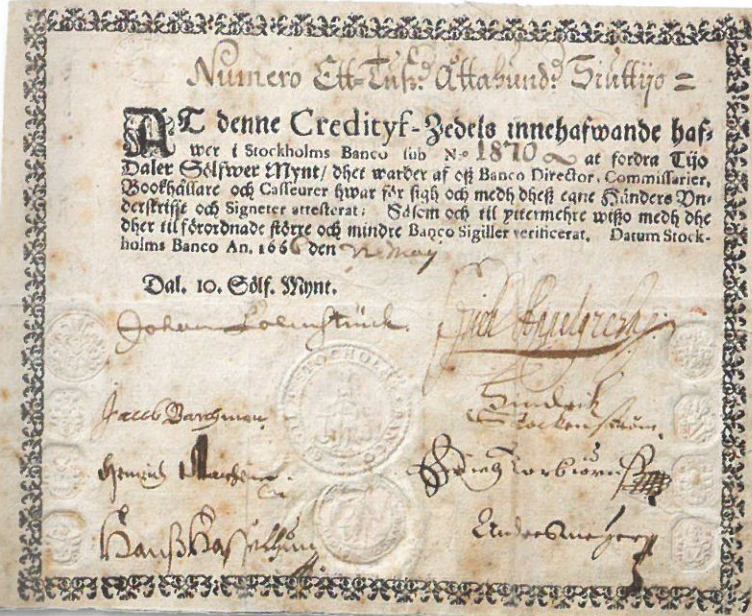 Numero Ett-Tus? Ottahund? Siuttijo =
AT denne Credityf-Zedels innehafwande haf-
wer i Stockholms Banco sub N:o 1870 at fordra Tijo
Daler Sölfwer Mynt/ dhet warder af oß Banco Director, Commissarier,
Bookhållare och Casseurer hwar för sigh och medh dheß egne Händers Vn-
derskrifft och Signeter attesterat; Såsom och til yttermehre wißo medh dhe
dher til förordnade större och mindre Banco Sigiller verificerat. Datum Stock-
holms Banco An. 1666 den May
Dal. 10. Sölf. Mynt.
Jacob
Hinrich
Hanß
Anders
STOCHOLM BANCO